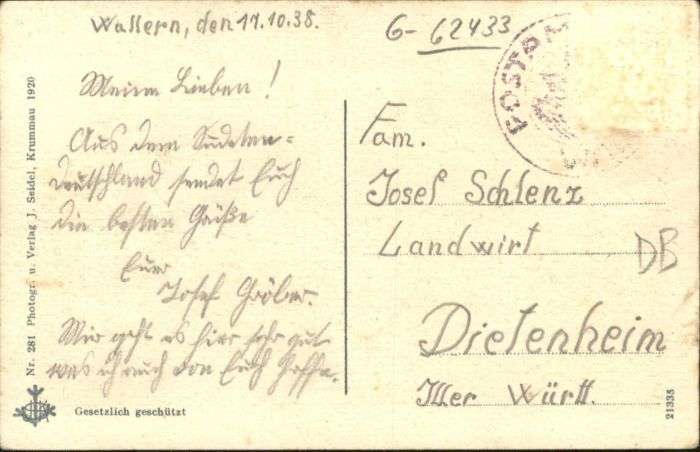 Wallern, den 11.10.38.
G-62433
POSTA
Meine Lieben!
Aus dem Sudeten=
deutschland sendet Euch
die besten Grüße
Euer
Josef Gröber.
Mir geht es hier sehr gut
was ich auch von Euch hoffe.
Fam.
Josef Schlenz
Landwirt
DB
Dietenheim
Iller Württ.
Nr. 281 Photogr. u. Verlag J. Seidel, Krummau 1920
Gesetzlich geschützt
21335